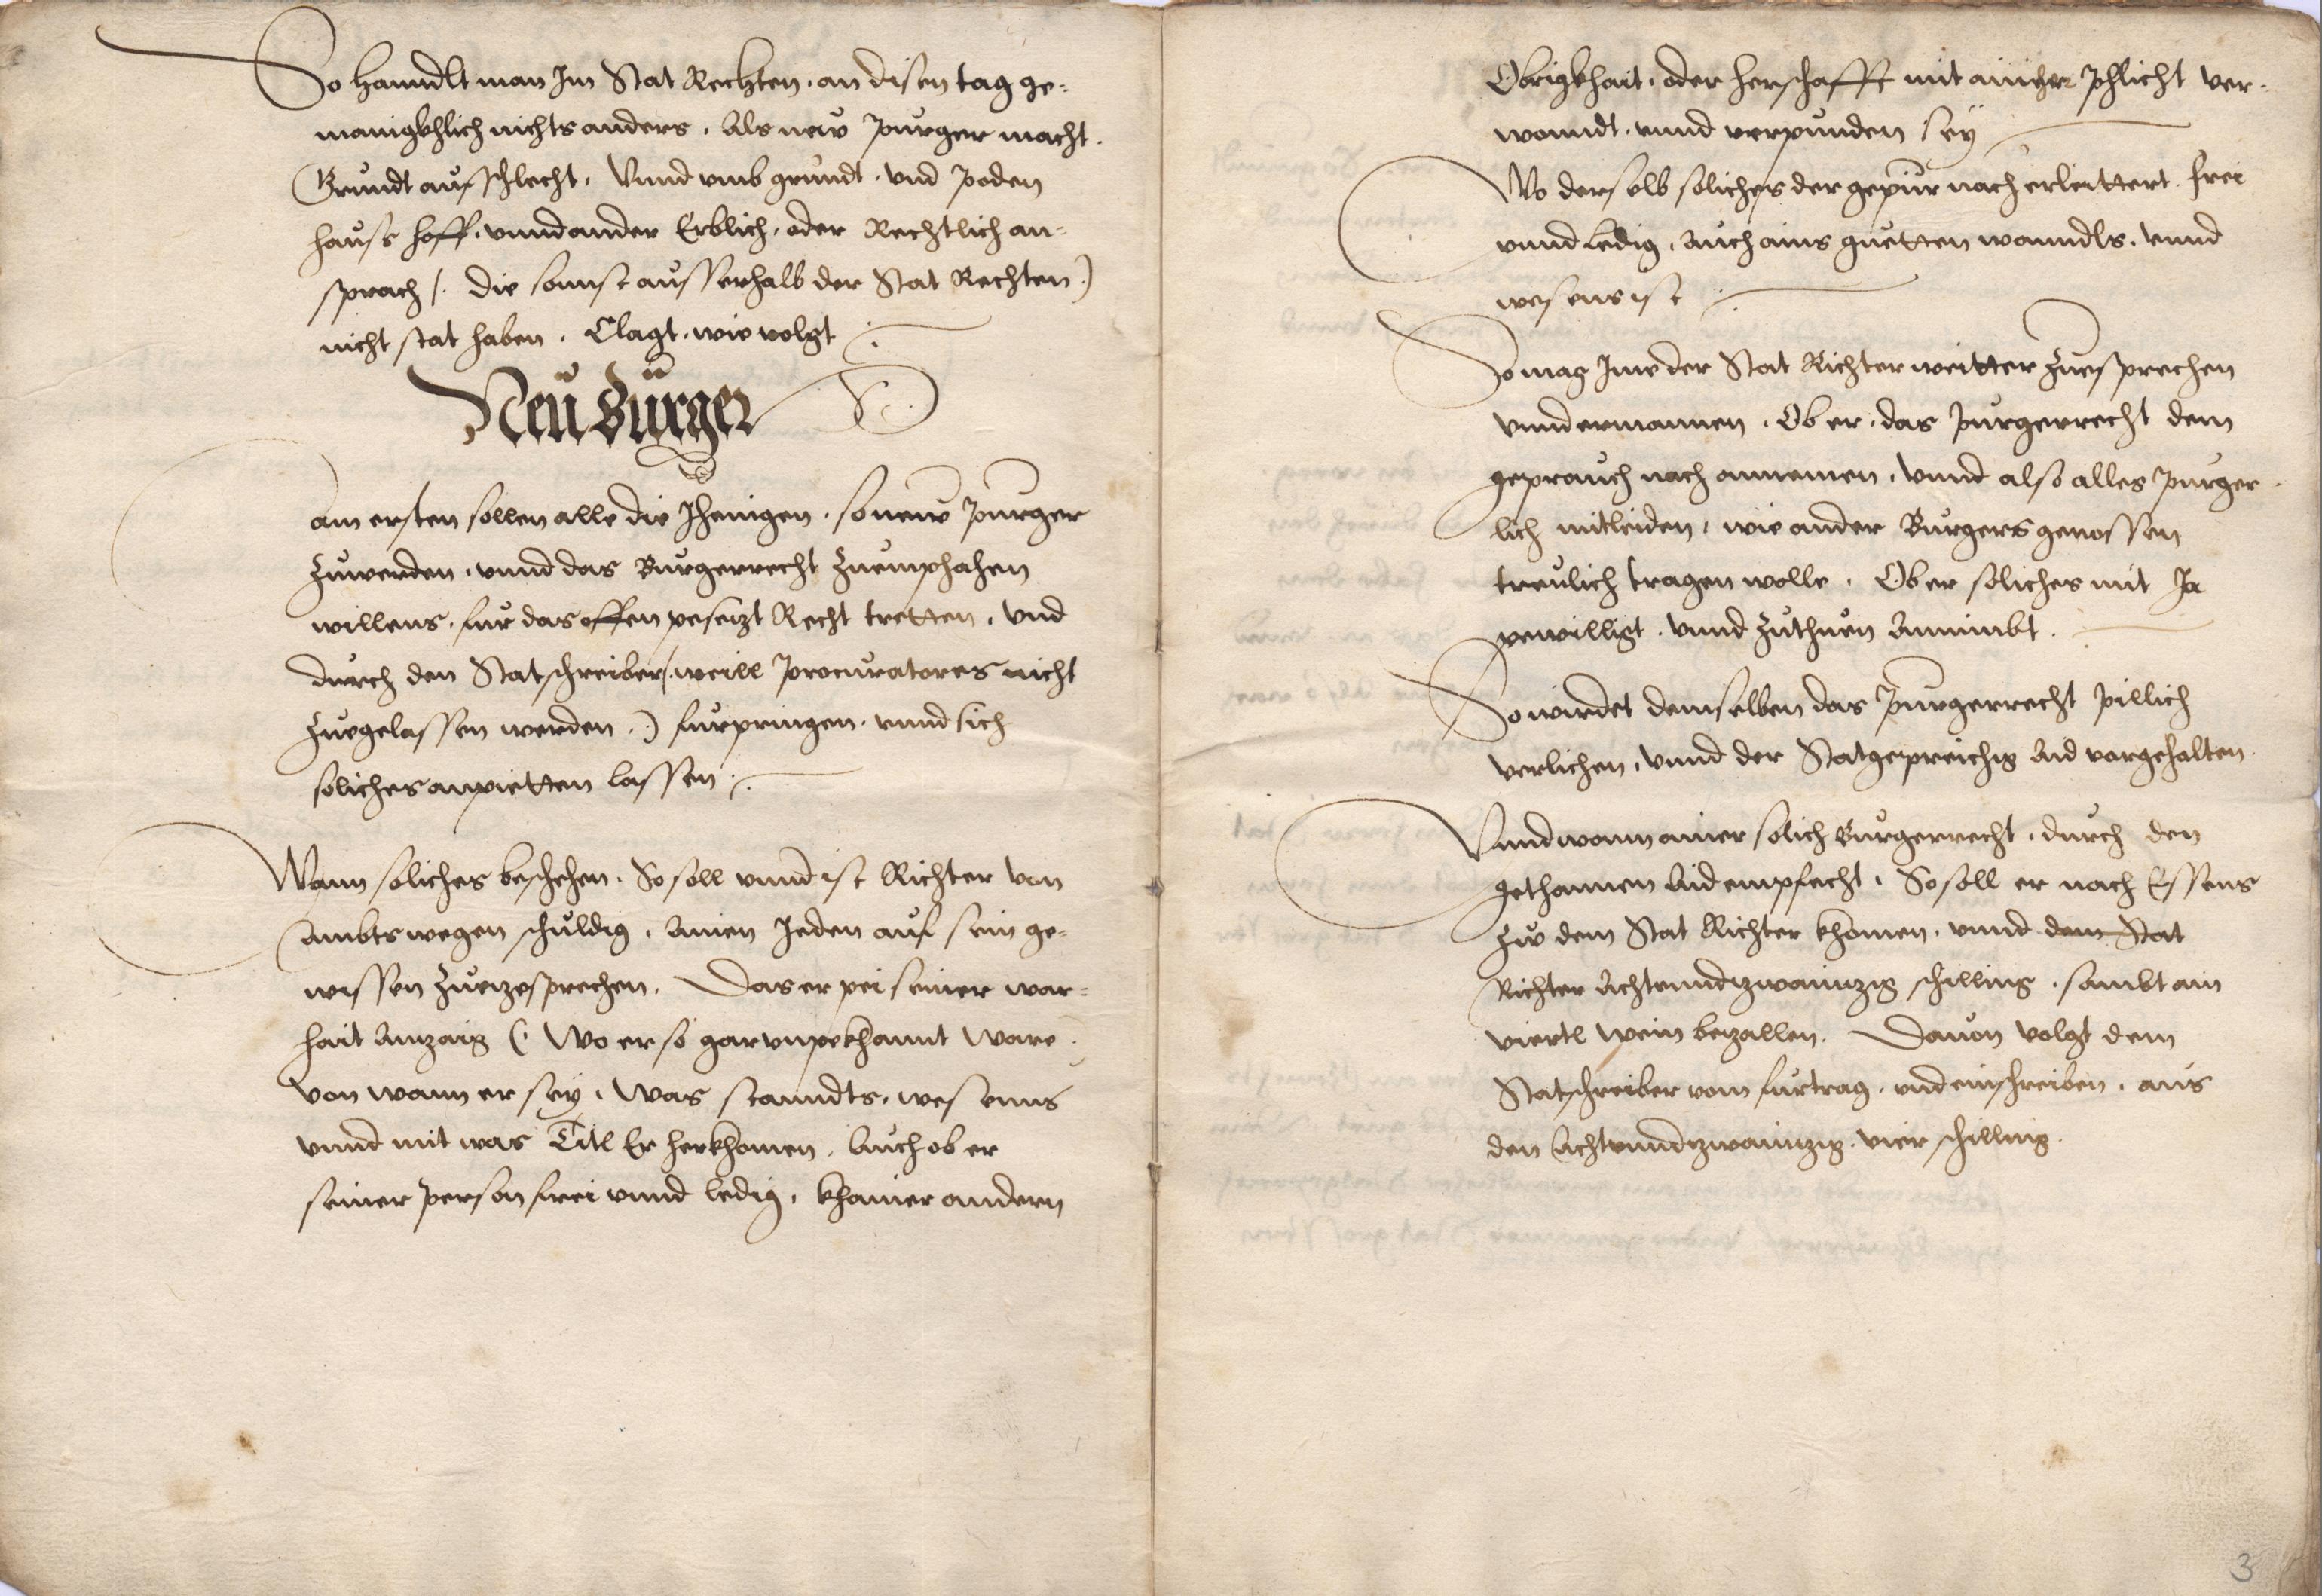 So hanndlt man Im Stat Rechten, an disen tag ge=
manigkhlich nichts anders, Als new purger macht.
Grundt aufschlecht, Vnnd vmb grundt, vnd poden
hauss hoff, vnnd ander Erblich, oder Rechtlich an=
sprach /. die sonnst ausserhalb der Stat Rechten .)
nicht stat haben, Clagt, wie volgt ./.
Neu Burger
Am ersten sollen alle die Jhenigen, so new purger
zuwerden, vnnd das Burgerrecht zuemphahen
willens, fur das offen pesezt Recht tretten, vnd
durch den Statschreiber /. weill procuratores nicht
zuegelassen werden .) furpringen, vnnd sich
soliches anpietten lassen ./.
Wann soliches beschehen, So soll vnnd ist Richter von
Ambts wegen schuldig, Ainen Jeden auf sein ge=
wissen zuezesprechen, Das er pei seiner war=
hait Anzaig (. Wo er so gar vnpekhannt ware .)
von wann er sey, Was stanndts, wesenns
vnnd mit was Titl Er herkhomen, Auch ob er
seiner person frei vnnd ledig, khainer andern
Obrigkhait, oder herschafft mit ainicher phlicht ver=
wonndt, vnnd verpunden sey
Wo derselb soliches der gepur nach erleittert, frei
vnnd ledig, Auch ains guetten wanndls, vnnd
wesens ist ./.
So mag Ime der Stat Richter weitter zuesprechen
vnnd ermannen, Ob er, das purgerrecht dem
geprauch nach annemen, vnnd also alles purger=
lich mitleiden, wie ander Burgers genossen
treulich tragen wolle, Ob er soliches mit Ja
pewilligt, vnnd zuthuen Annimbt.
So wirdet demselben das purgerrecht pillich
verlichen, vnnd der Statgepreichig Aid vorgehalten.
Vnnd wann ainer solich Burgerrecht, durch den
gethannen Aid empfecht, So soll er nach Essens
zw dem Stat Richter khomen, vnnd dem Stat
Richter Achtunndzwainzig schilling, sambt ain
viertl wein bezallen. Dauon volgt dem
Statschreiber vom furtrag, vnd einschreiben, aus
den Achtunndzwainzig, vier schilling.
3